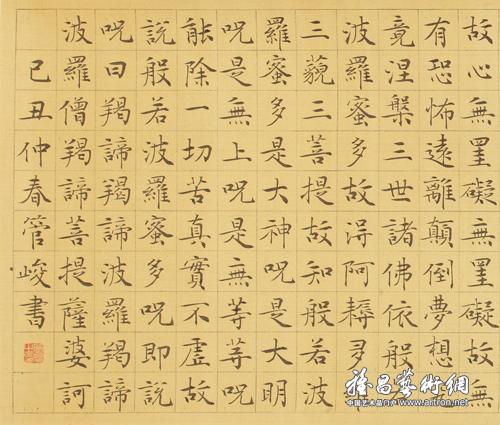 故心無罣礙無罣礙故無
有恐怖遠離顛倒夢想
竟涅槃三世諸佛依般
波羅蜜多故淂阿耨多
三藐三菩提故知般若波
羅蜜多是大神呪是大明
呪是無上呪是無等等呪
能除一切苦真實不虛故
說般若波羅蜜多呪即說
呪曰羯諦羯諦波羅羯諦
波羅僧羯諦菩提薩婆訶
己丑仲春管峻書
雅昌藝術網
中国艺术品门户 www.artron.net